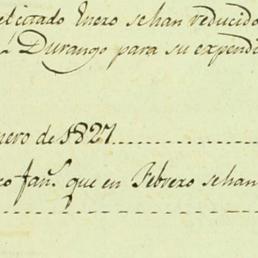 el citado Enero se han reducido
Durango para su expendi
nero de 1827
co fan.s que en Febrero se han